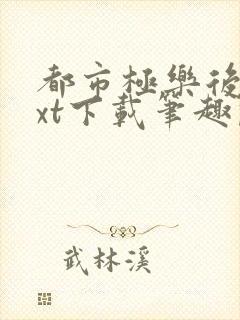 都市極樂後
xt下載筆趣
武林溪